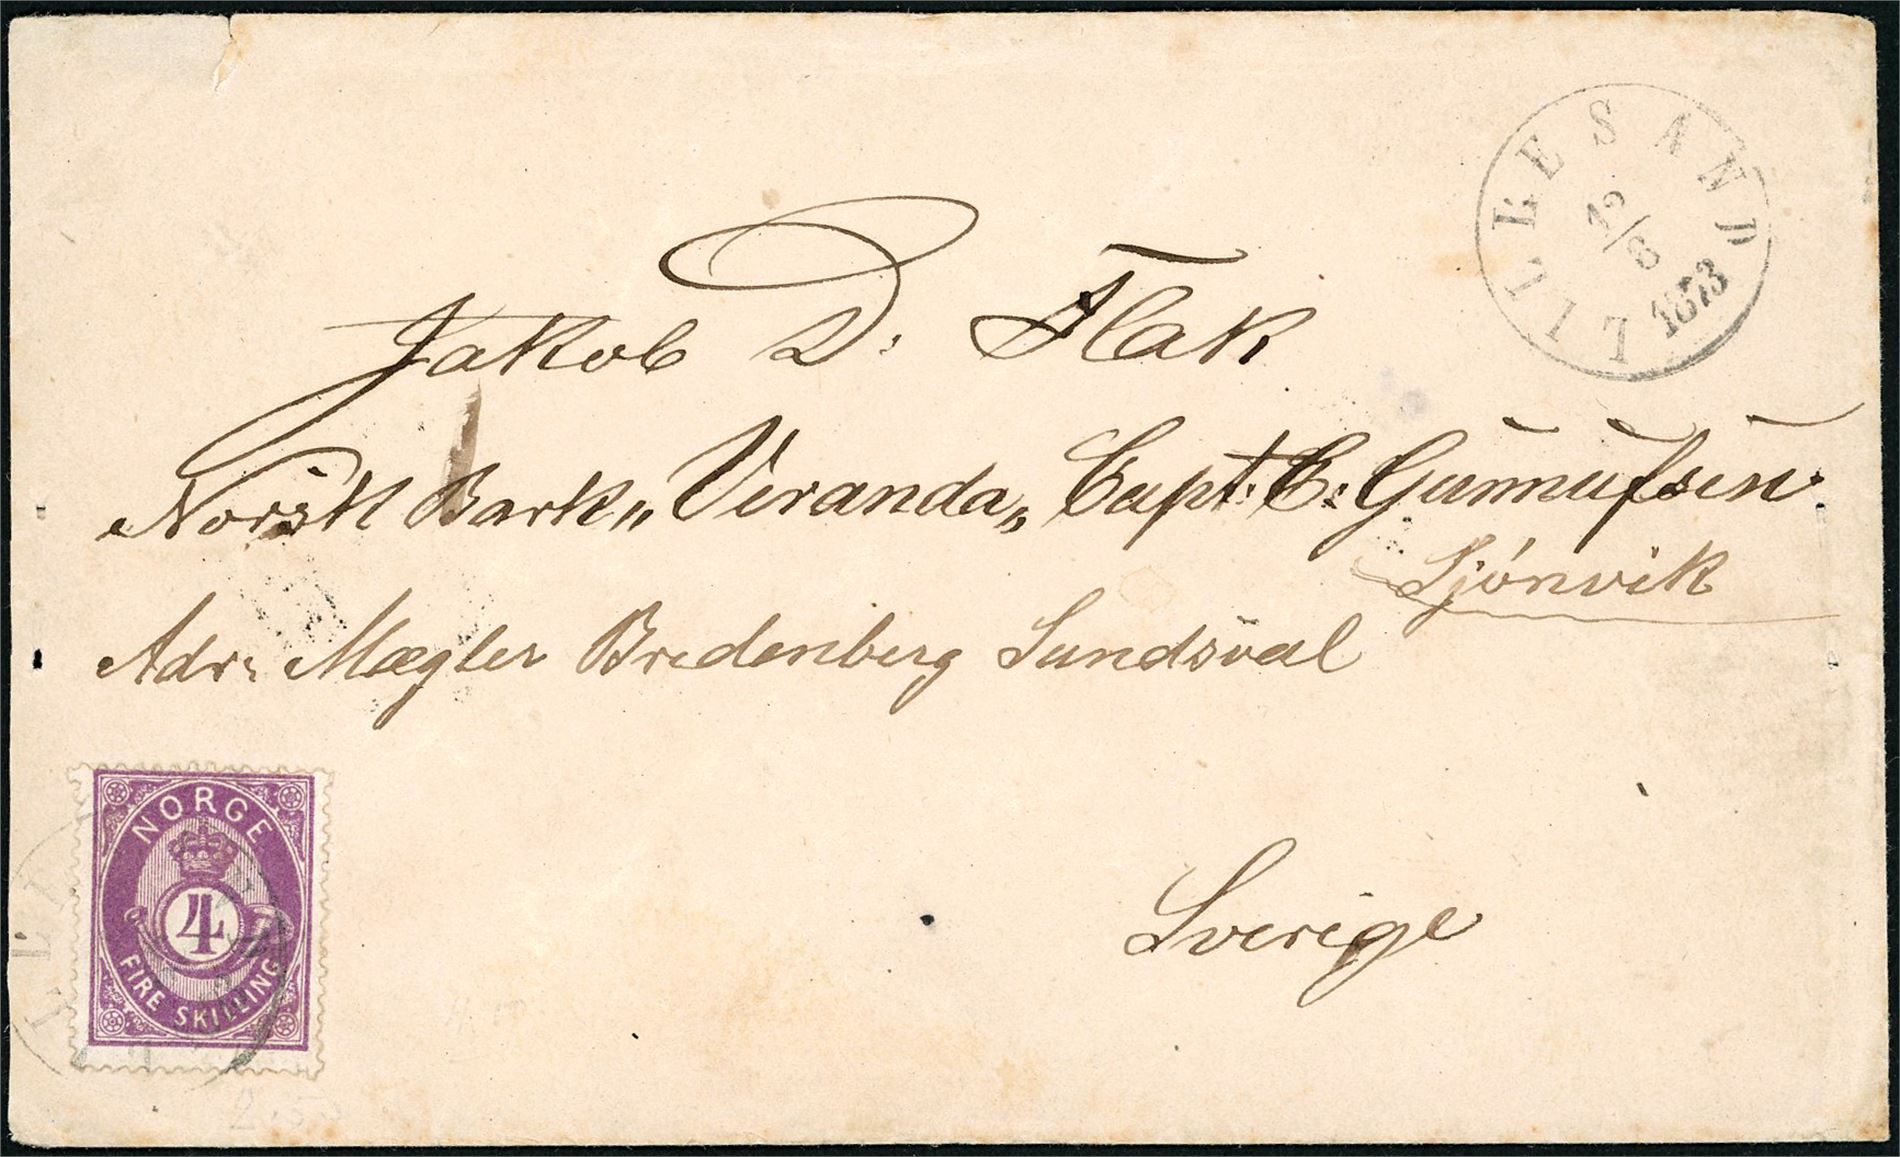 LILLESAND
12/8
1873
Jakob D: Flak
Norsk Bark „Veranda„ Capt: E: Gunnufsen.
Sjónvik
Adr: Mægler Bredenberg Sundsval
Sverige
NORGE
4
FIRE SKILLING